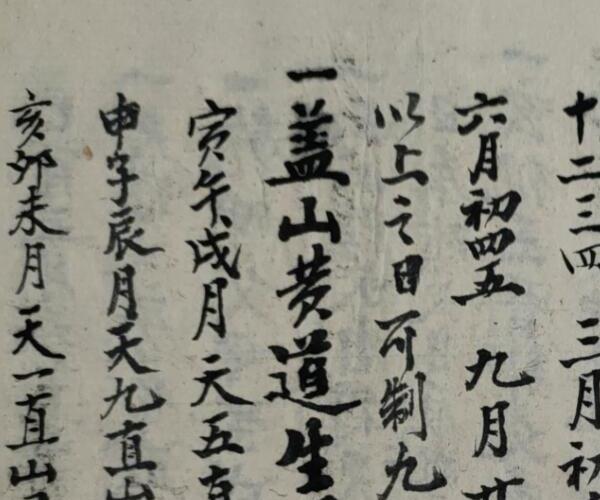 十二三四 三月初
六月初四五 九月廿
以上之日可制九
一盖山黄道生
寅午戌月天五直
申子辰月天九直山
亥卯未月天一直山